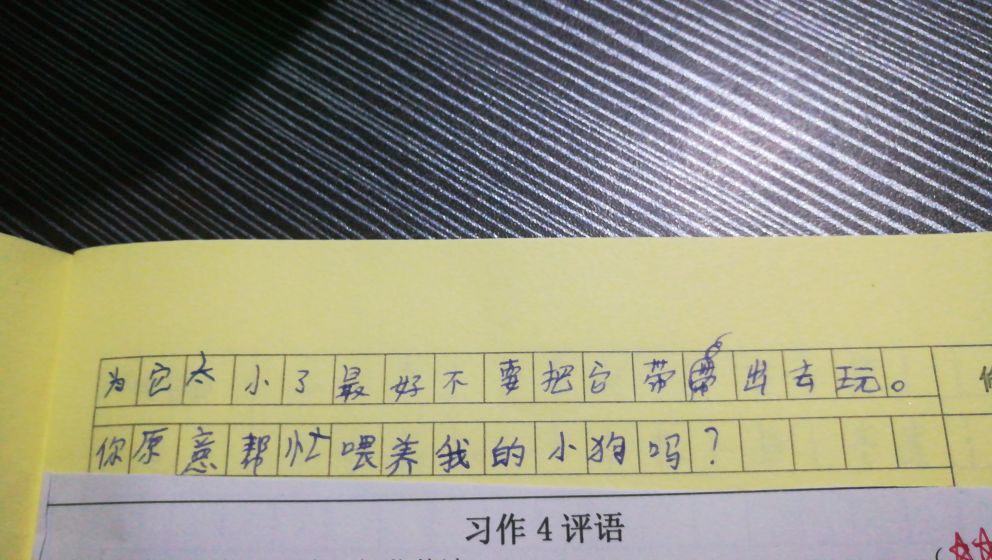 为它太小了最好不要把它带出去玩。
你原意帮忙喂养我的小狗吗？
习作4评语